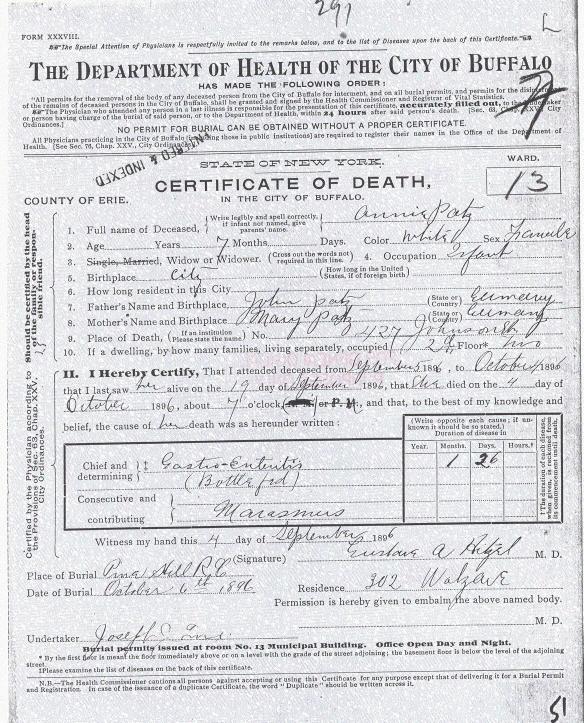 291
L
FORM XXXVIII.
"The Special Attention of Physicians is respectfully invited to the remarks below, and to the list of Diseases upon the back of this Certificate."
THE DEPARTMENT OF HEALTH OF THE CITY OF BUFFALO
HAS MADE THE FOLLOWING ORDER:
"All permits for the removal of the body of any deceased person from the City of Buffalo for interment, and on all burial permits, and permits for the
of the remains of deceased persons in the City of Buffalo, shall be granted and signed by the Health Commissioner and Registrar of Vital Statistics.
The Physician who attended any person in a last illness is responsible for the presentation of this certificate, accurately filled out, to the
or person having charge of the burial of said person, or to the Department of Health, within 24 hours after said person's death. [Sec. 63, Chap. XXV., City
Ordinances.]
NO PERMIT FOR BURIAL CAN BE OBTAINED WITHOUT A PROPER CERTIFICATE.
All Physicians practicing in the City of Buffalo (including those in public institutions) are required to register their names in the Office of the Department of
Health. [See Sec. 76, Chap. XXV., City Ordinances.]
& INDEXED
STATE OF NEW YORK.
WARD.
13
CERTIFICATE OF DEATH,
COUNTY OF ERIE. IN THE CITY OF BUFFALO.
1. Full name of Deceased, (Write legibly and spell correctly, if infant not named, give parents' name.) Annie Patz
2. Age Years 7 Months. Days. Color White Sex Female
3. Single, Married, Widow or Widower. (Cross out the words not required in this line.) 4. Occupation Infant
5. Birthplace City (How long in the United States, if of foreign birth)
6. How long resident in this City
7. Father's Name and Birthplace John Patz (State or Country) Germany
8. Mother's Name and Birthplace Mary Patz (State or Country) Germany
9. Place of Death, (If an institution Please state the name) No. 427 Johnson
10. If a dwelling, by how many families, living separately, occupied 2 Floor* two
II. I Hereby Certify, That I attended deceased from September 1896, to October 1896
that I last saw her alive on the 19 day of September 1896, that she died on the 4 day of
October 1896, about 7 o'clock, or P. M., and that, to the best of my knowledge and
belief, the cause of her death was as hereunder written:
(Write opposite each cause; if unknown it should be stated.)
Duration of disease in
Year. Months. Days. Hours.†
1 26
Chief and determining Gastro-Enteritis
(Bottle fed)
Consecutive and contributing Marasmus
Witness my hand this 4 day of September 1896
(Signature) Gustave A Hitzel M. D.
Place of Burial Pine Hill R.C.
Date of Burial October 6th 1896 Residence 302
Permission is hereby given to embalm the above named body.
M. D.
Undertaker Joseph
Burial permits issued at room No. 13 Municipal Building. Office Open Day and Night.
* By the first floor is meant the floor immediately above or on a level with the grade of the street adjoining; the basement floor is below the level of the adjoining
street.
‡Please examine the list of diseases on the back of this certificate.
N.B.—The Health Commissioner cautions all persons against accepting or using this Certificate for any purpose except that of delivering it for a Burial Permit
and Registration. In case of the issuance of a duplicate Certificate, the word "Duplicate" should be written across it.
51
Certified by the Physician according to the Provisions of Sec. 63, Chap. XXV, City Ordinances.
Should be certified by the head of the family or responsible friend.
†The duration of each disease, when given, is reckoned from its commencement until death.